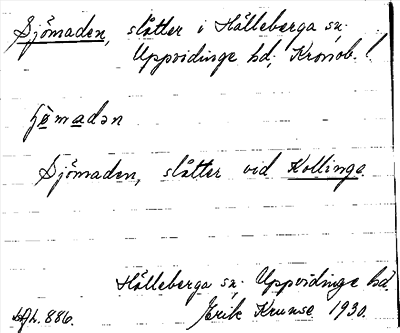 Sjömaden, slåtter i Hälleberga sn.
Uppvidinge hd, Kronob. l.
Sjömaden, slåtter vid Kollinga.
Hälleberga sn. Uppvidinge hd.
Erik Krunse 1930.